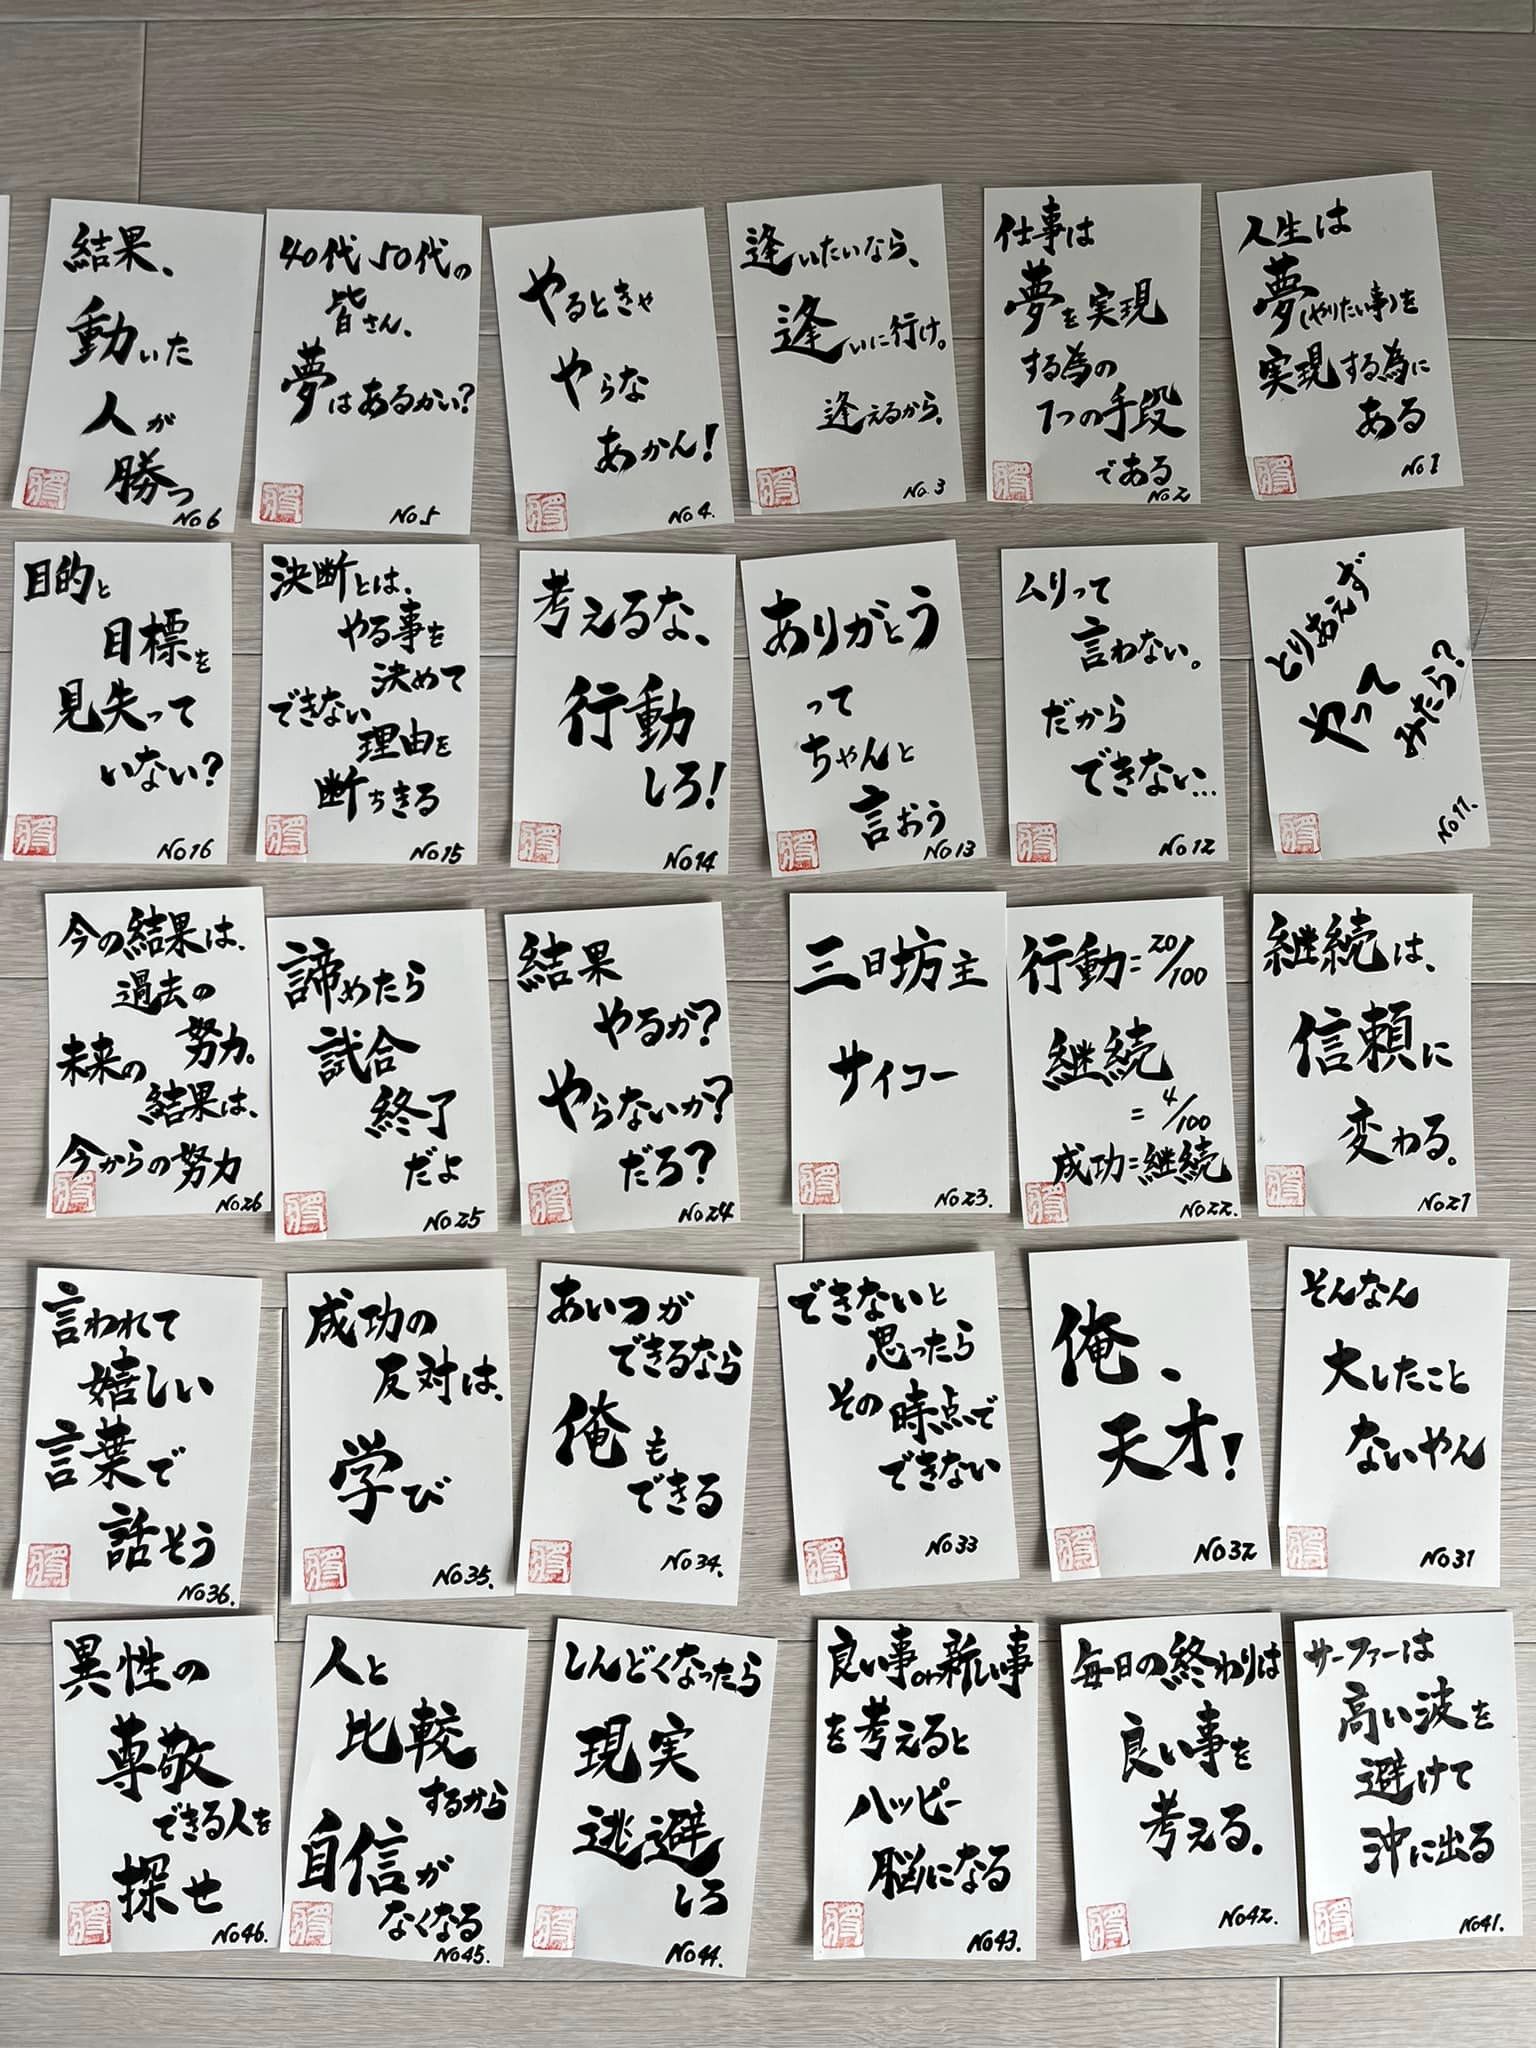 人生は
夢(やりたい事)を
実現する為に
ある
No1
仕事は
夢を実現
する為の
1つの手段
である
No2
逢いたいなら、
逢いに行け。
逢えるから。
No.3
やるときゃ
やらな
あかん!
No4.
40代50代の
皆さん、
夢はあるかい?
No5
結果、
動いた
人が
勝つ
No6
とりあえず
やって
みたら?
No11.
ムリって
言わない。
だから
できない…
No12
ありがとう
って
ちゃんと
言おう
No13
考えるな、
行動
しろ!
No14
決断とは、
やる事を
決めて
できない
理由を
断ちきる
No15
目的と
目標を
見失って
いない?
No16
継続は、
信頼に
変わる。
No21
行動=20/100
継続
=4/100
成功=継続
No22.
三日坊主
サイコー
No23.
結果
やるか?
やらないか?
だろ?
No24
諦めたら
試合
終了
だよ
No25
今の結果は、
過去の
努力。
未来の
結果は、
今からの努力
No26
そんなん
大したこと
ないやん
No31
俺、
天才!
No32
できないと
思ったら
その時点で
できない
No33
あいつが
できるなら
俺も
できる
No34.
成功の
反対は、
学び
No35.
言われて
嬉しい
言葉で
話そう
No36.
サーファーは
高い波を
避けて
沖に出る
No41.
毎日の終わりは
良い事を
考える。
No42.
良い事or新しい事
を考えると
ハッピー
脳になる
No43.
しんどくなったら
現実
逃避
しろ
No44.
人と
比較
するから
自信が
なくなる
No45.
異性の
尊敬
できる人を
探せ
No46.